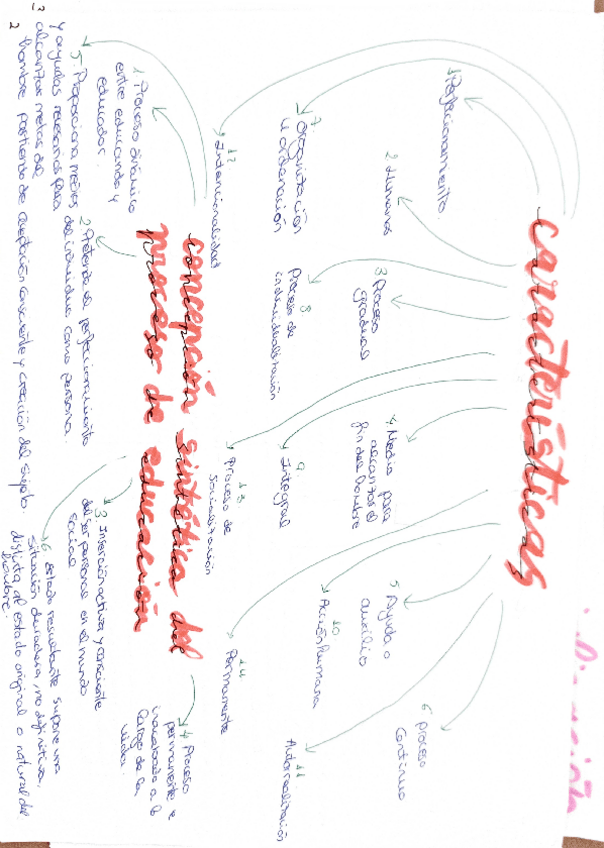 características
1 Perfeccionamiento.
2 Humanos
3 Proceso
gradual
4 Medio para
alcanzar el
fin del hombre
5 Ayuda o
auxilio
6 proceso
continuo
7. Organización
u ordenación
8
Proceso de
individualización
9
Integral
10
Acción humana
11
Autorrealización
12
Intencionalidad
13
Proceso de
socialización
14
Permanente
concepción sintética del
proceso de educación
1. Proceso dinámico
entre educando y
educador.
2. Pretende el perfeccionamiento
del individuo como persona.
3 Inserción activa y consciente
del ser personal en el mundo
social.
4 Proceso
permanente e
inacabado a lo
largo de la
vida.
5. Proporciona medios
y ayudas necesarias para
alcanzar metas del
hombre partiendo de aceptación consciente y creación del sujeto.
6. estado resultante supone una
situación duradera, no definitiva,
distinta al estado original o natural del
hombre.